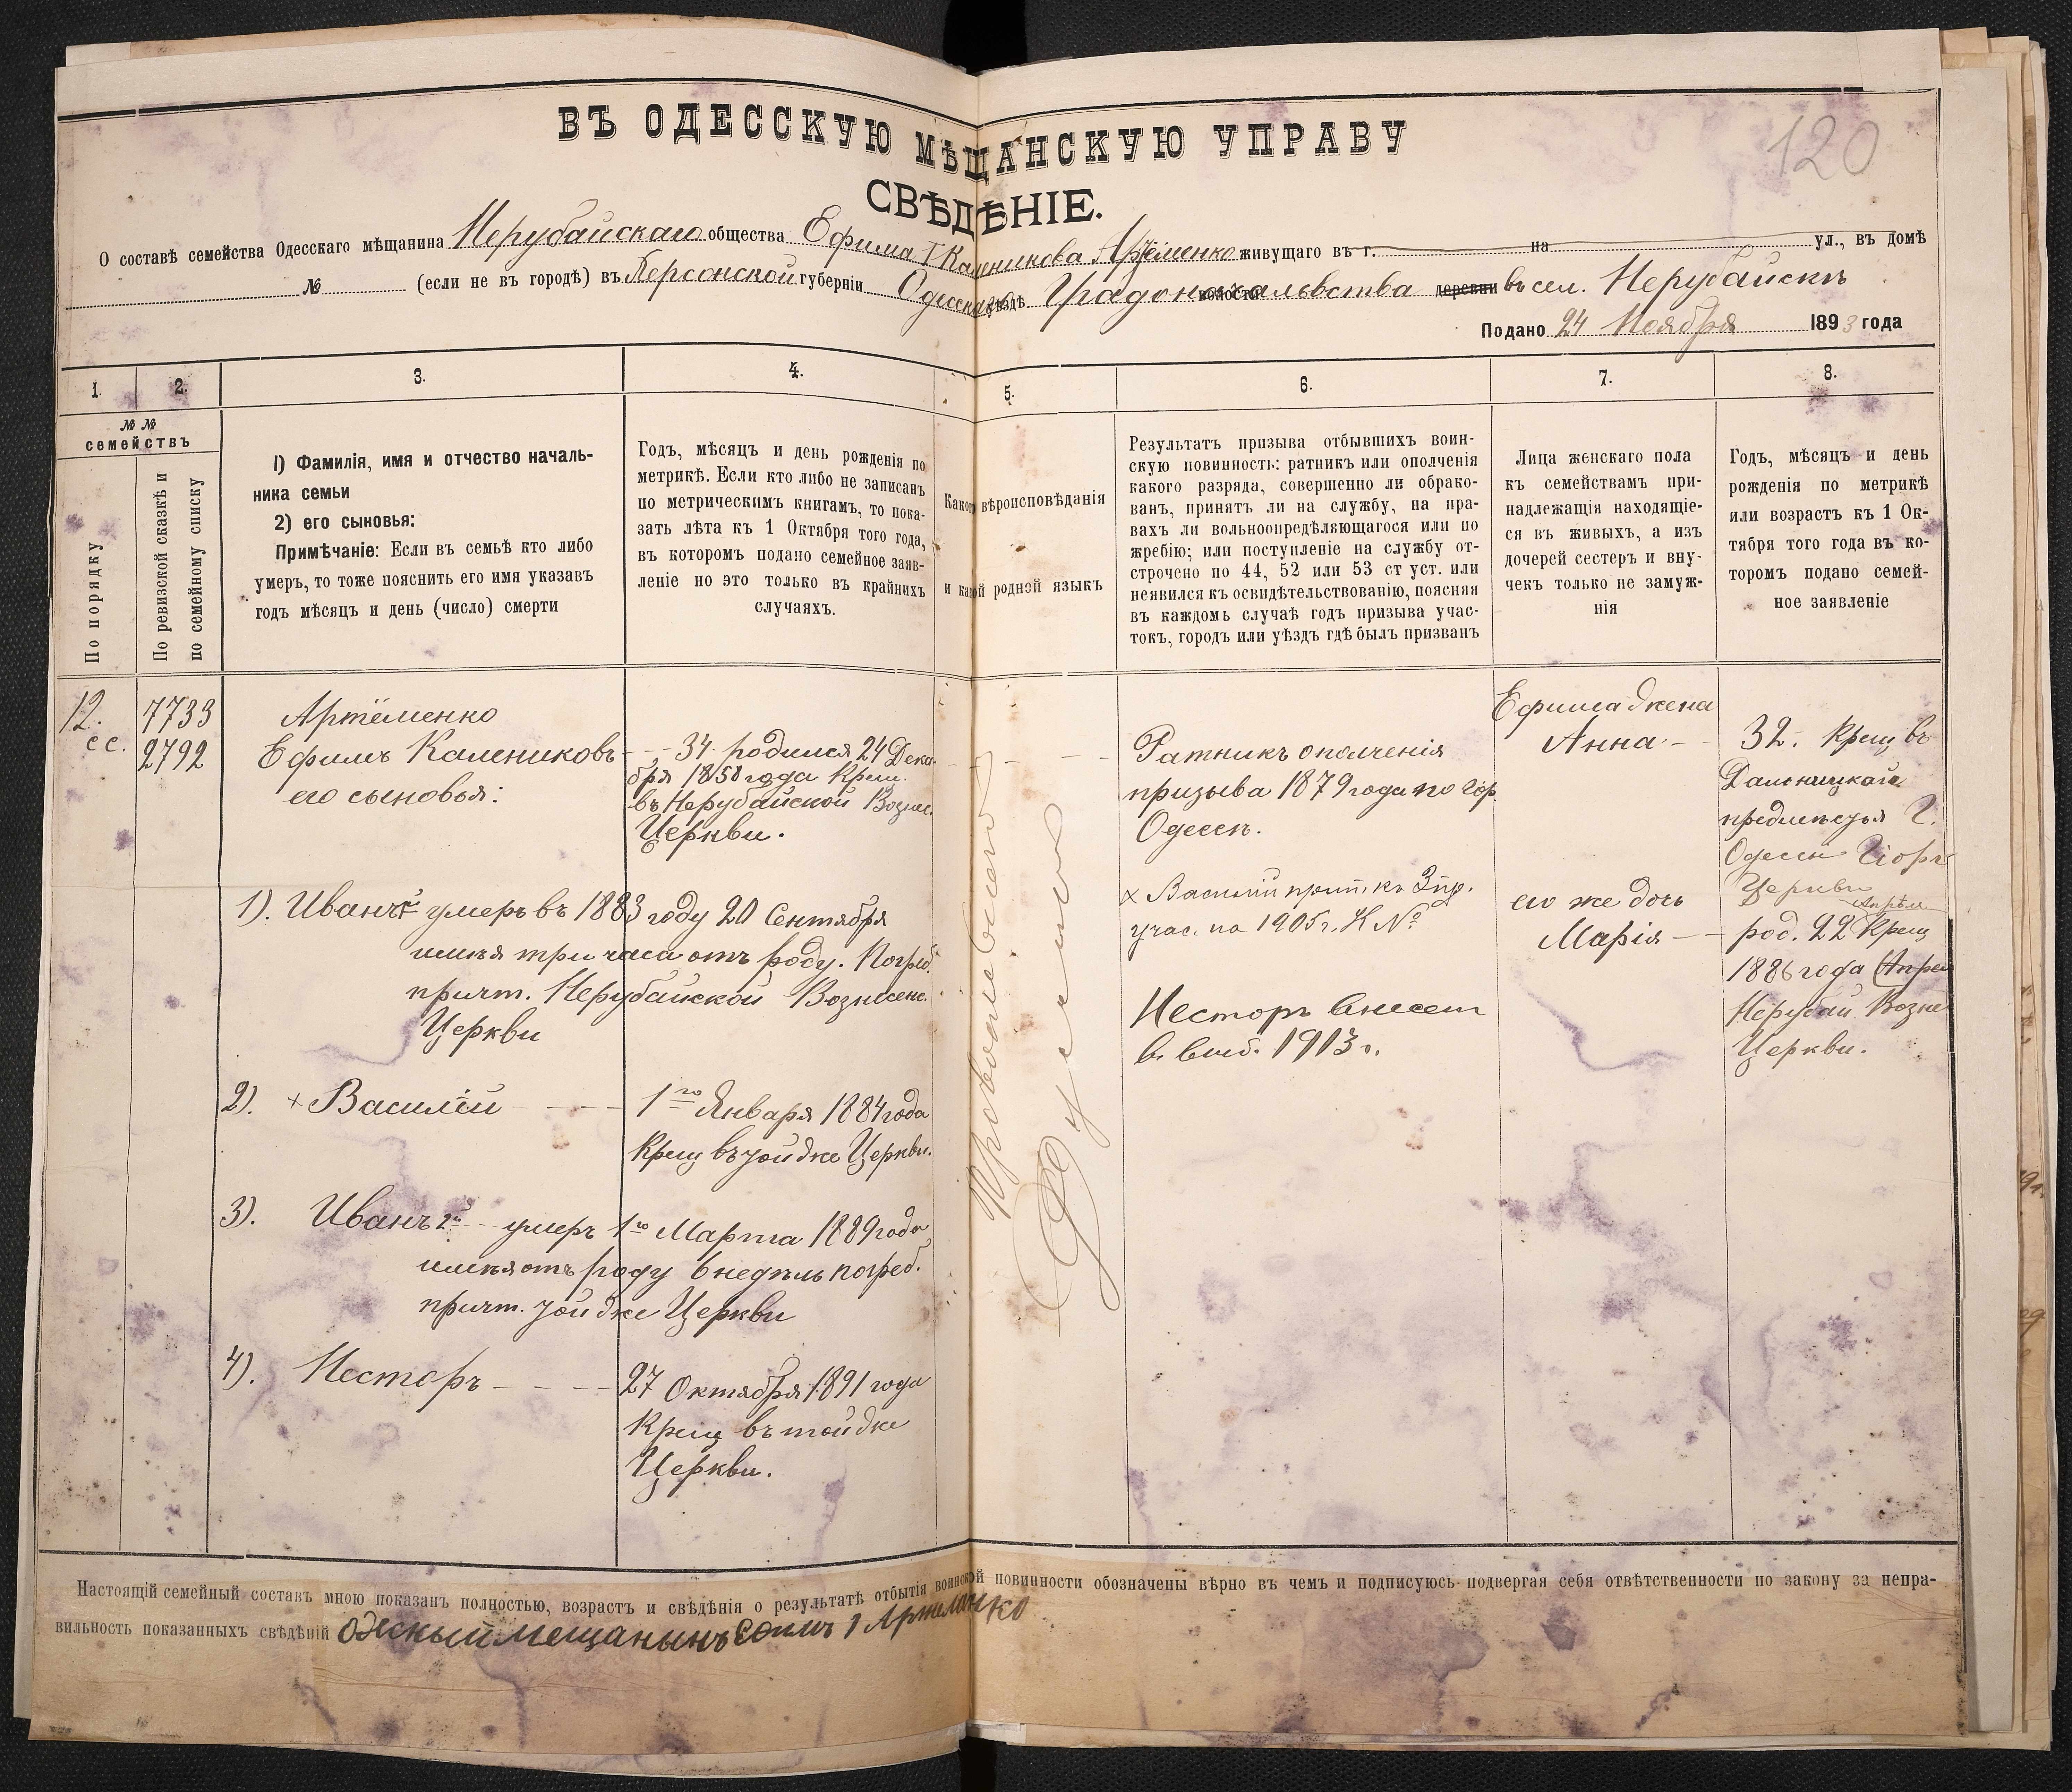 120
ВЪ ОДЕССКУЮ МѢЩАНСКУЮ УПРАВУ
СВѢДѢНІЕ.
О составѣ семейства Одесскаго мѣщанина Нерубайскаго общества Ефима I Калѣникова Артёменко живущаго въ г. на ул., въ домѣ
№ (если не въ городѣ) въ Херсонской губерніи Одесскаго уѣздѣ Градоначальства волости деревни въ сел. Нерубайскъ
Подано 24 Ноября 1893 года
1. 2. 3. 4. 5. 6. 7. 8.
№ №
семействъ
По порядку
По ревизской сказкѣ и
по семейному списку
1) Фамилія, имя и отчество началь-
ника семьи
2) его сыновья:
Примѣчаніе: Если въ семьѣ кто либо
умеръ, то тоже пояснить его имя указавъ
годъ мѣсяцъ и день (число) смерти
Годъ, мѣсяцъ и день рожденія по
метрикѣ. Если кто либо не записанъ
по метрическимъ книгамъ, то пока-
зать лѣта къ 1 Октября того года,
въ которомъ подано семейное заяв-
леніе но это только въ крайнихъ
случаяхъ.
Какого вѣроисповѣданія
и какой родной языкъ
Результатъ призыва отбывшихъ воин-
скую повинность: ратникъ или ополченія
какого разряда, совершенно ли обрако-
ванъ, принятъ ли на службу, на пра-
вахъ ли вольноопредѣляющагося или по
жребію; или поступленіе на службу от-
строчено по 44, 52 или 53 ст уст. или
неявился къ освидѣтельствованію, поясняя
въ каждомъ случаѣ годъ призыва учас-
токъ, городъ или уѣздъ гдѣ былъ призванъ
Лица женскаго пола
къ семействамъ при-
надлежащія находящіе-
ся въ живыхъ, а изъ
дочерей сестеръ и вну-
чекъ только не замуж-
нія
Годъ, мѣсяцъ и день
рожденія по метрикѣ
или возрастъ къ 1 Ок-
тября того года въ ко-
торомъ подано семей-
ное заявленіе
12.
сс.
7733
2792
Артёменко
Ефимъ Калениковъ
его сыновья:
34. родился 24 Дека
бря 1858 года Крещ.
въ Нерубайской Вознес.
Церкви.
1). Иванъ умеръ въ 1883 году 20 Сентября
имѣя три часа отъ роду. Погреб.
причт. Нерубайской Вознесенс.
Церкви
2). + Василій
1го Января 1884 года
Крещ въ той же Церкви.
3). Иванъ 2й умеръ 1го Марта 1889 года
имѣя отъ роду 6 недѣль погреб.
причт. той же Церкви
4). Несторъ
27 Октября 1891 года
Крещ въ той же
Церкви.
Православного
Русскій
Ратникъ ополченія
призыва 1879 года по гор.
Одессѣ.
x Василій прип. къ
учас. на 1905 г. К №
Несторъ внесен
в. 1913 г.
Ефима жена
Анна
его же дочь
Марія
32. Крещ въ
Дальницкаго
предмѣстья Г.
Одессы
Церкви
Апрѣля
род. 22 Крещ
1886 года
Нерубай. Возне
Церкви.
Настоящій семейный составъ мною показанъ полностью, возрастъ и свѣдѣнія о результатѣ отбытія воинской повинности обозначены вѣрно въ чемъ и подписуюсь подвергая себя отвѣтственности по закону за непра-
вильность показанныхъ свѣдѣній Одескый мещанынъ Ефимъ 1 Артеманко